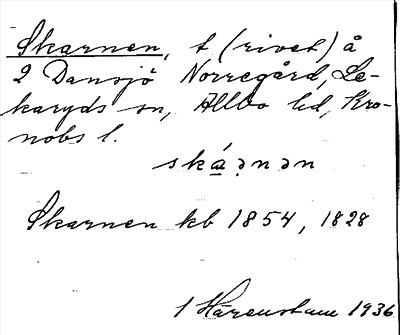 Skarnen, t (rivet) å
2 Dansjö Norregård, Le-
karyds sn, Allbo hd, Kro-
nobs l.
ská̱ənən
Skarnen kb 1854, 1828
1 Härenstam 1936